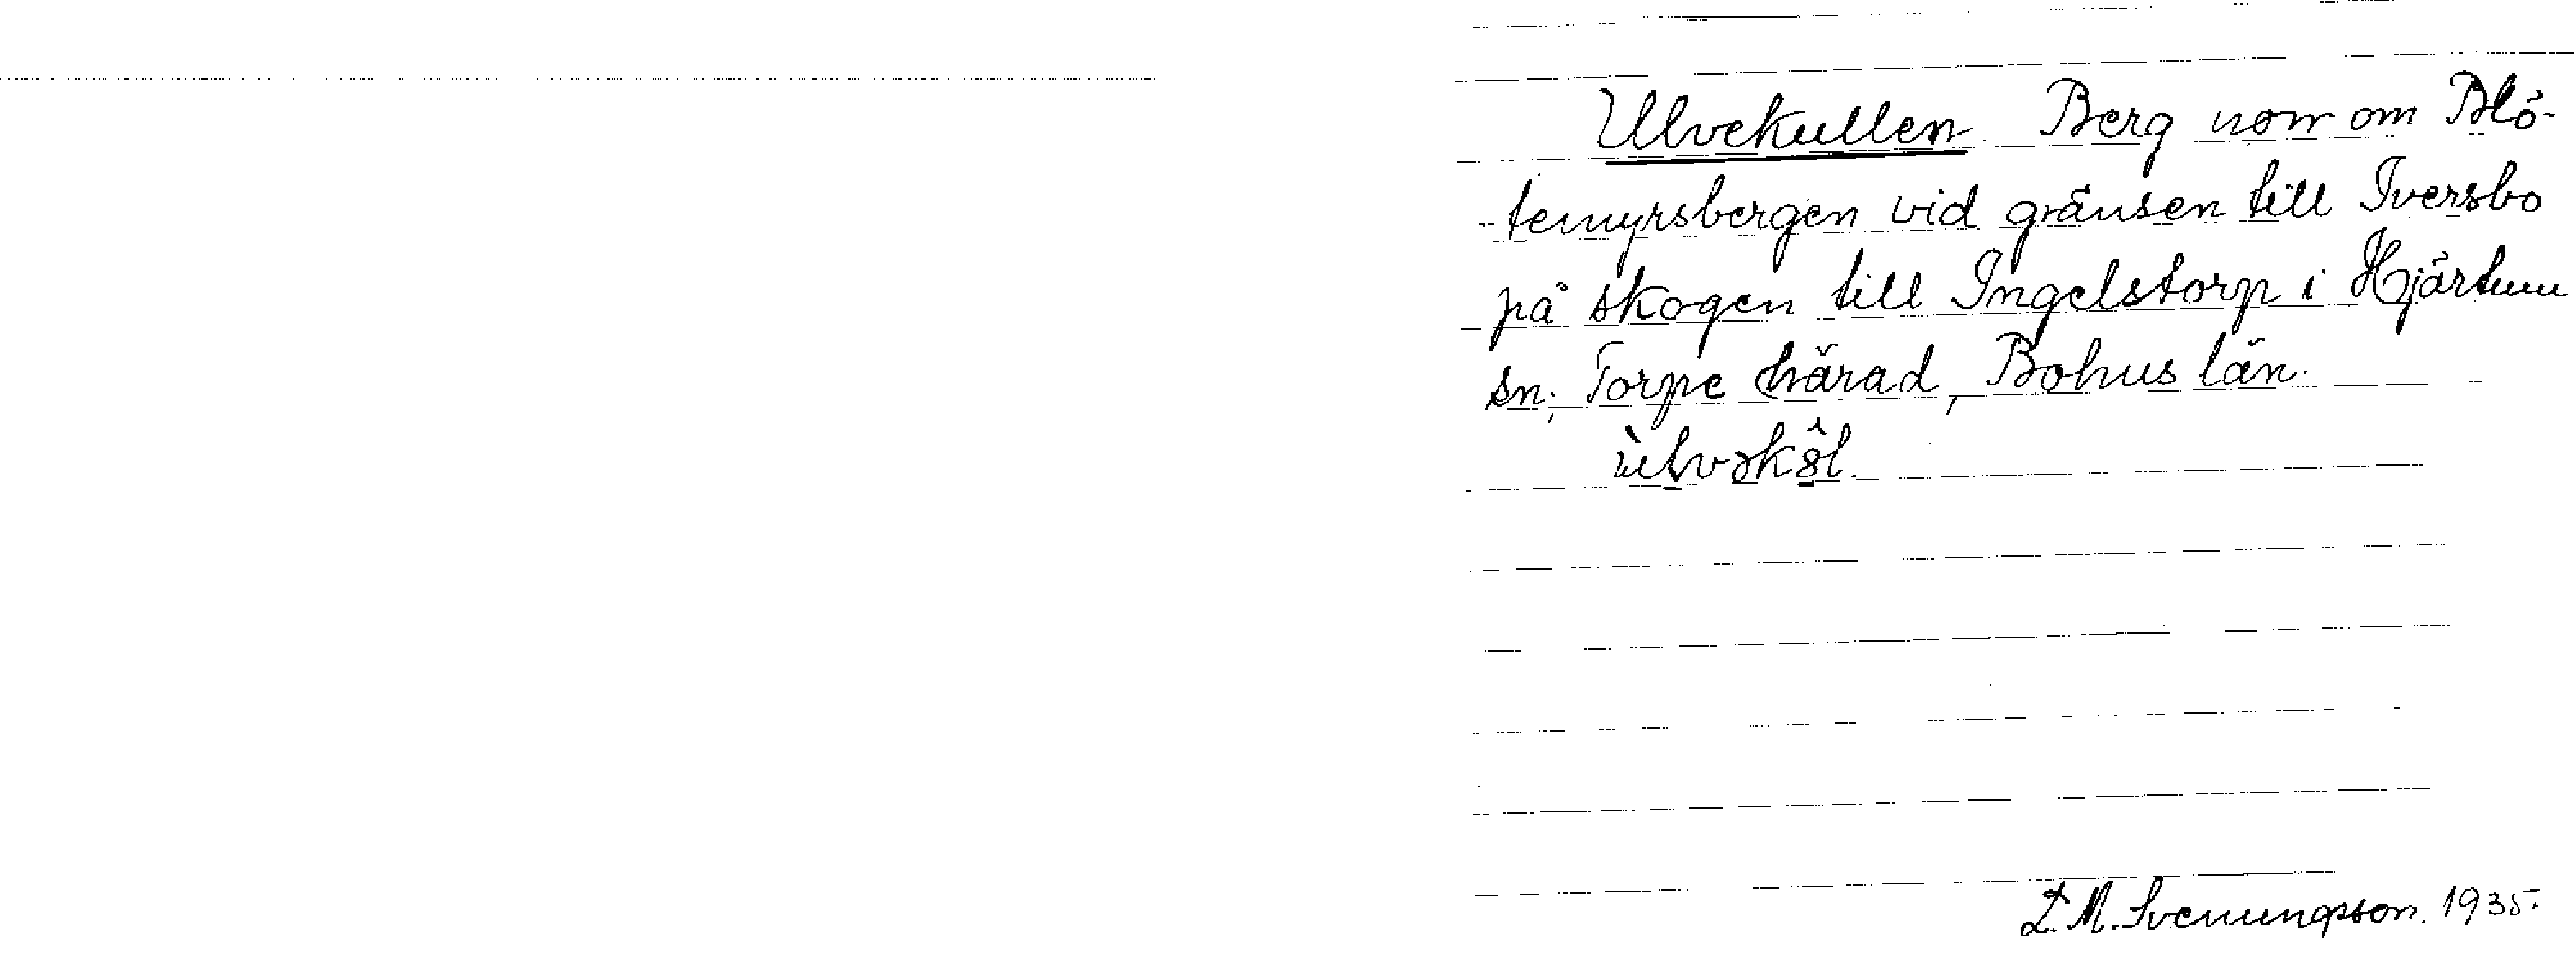 Ulvekullen Berg norr om Blö-
-temyrsbergen vid gränsen till Iversbo
på skogen till Ingelstorp i Hjärtum
sn; Torpe härad, Bohus län.
L. M. Svenungsson. 1935.